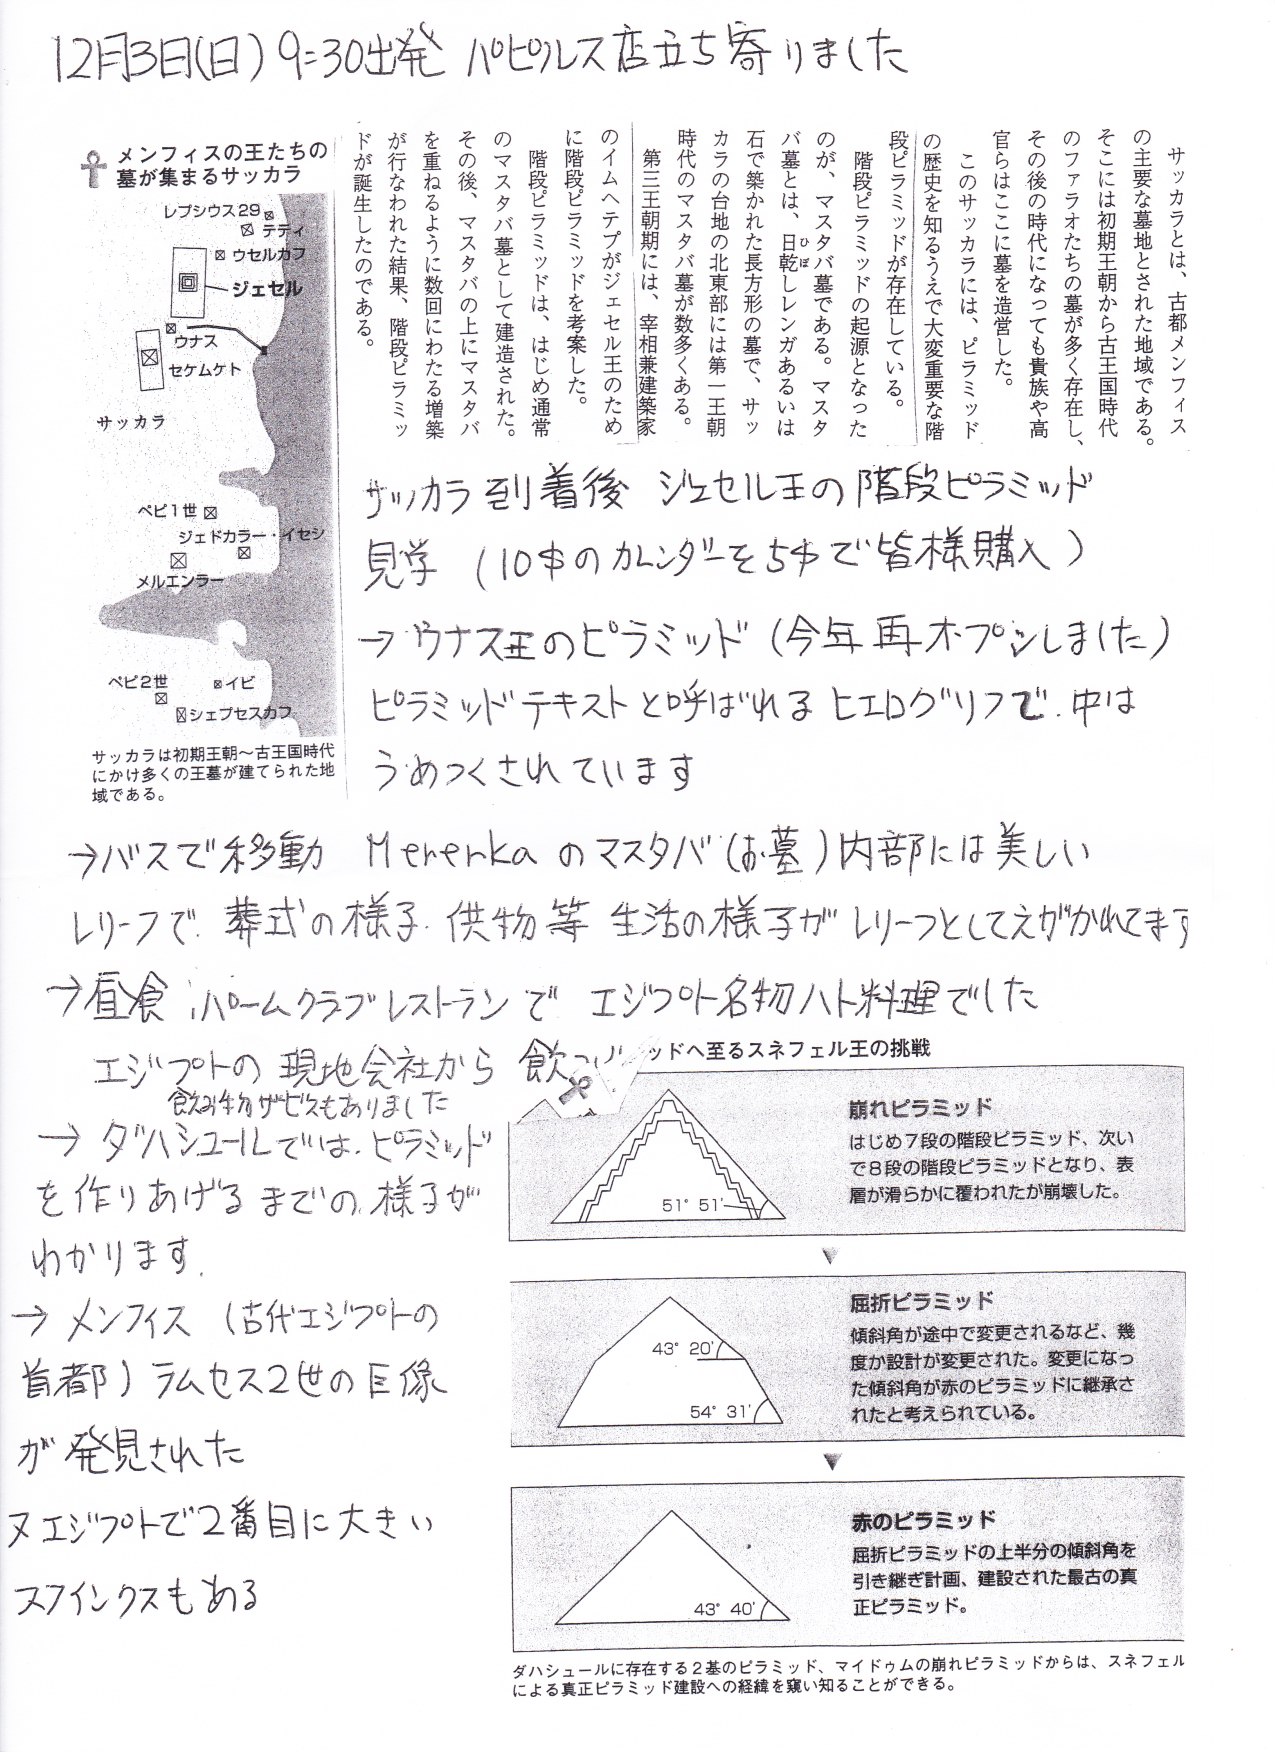 12月3日(日) 9:30出発 パピルス店立ち寄りました
サッカラとは、古都メンフィス
の主要な墓地とされた地域である。
そこには初期王朝から古王国時代
のファラオたちの墓が多く存在し、
その後の時代になっても貴族や高
官らはここに墓を造営した。
このサッカラには、ピラミッド
の歴史を知るうえで大変重要な階
段ピラミッドが存在している。
階段ピラミッドの起源となった
のが、マスタバ墓である。マスタ
バ墓とは、日乾しレンガあるいは
ひぼ
石で築かれた長方形の墓で、サッ
カラの台地の北東部には第一王朝
時代のマスタバ墓が数多くある。
第三王朝期には、宰相兼建築家
のイムヘテプがジェセル王のため
に階段ピラミッドを考案した。
階段ピラミッドは、はじめ通常
のマスタバ墓として建造された。
その後、マスタバの上にマスタバ
を重ねるように数回にわたる増築
が行なわれた結果、階段ピラミッ
ドが誕生したのである。
メンフィスの王たちの
墓が集まるサッカラ
レプシウス29
テティ
ウセルカフ
ジェセル
ウナス
セケムケト
サッカラ
ペピ1世
ジェドカラー・イセシ
メルエンラー
ペピ2世
イビ
シェプセスカフ
サッカラは初期王朝〜古王国時代
にかけ多くの王墓が建てられた地
域である。
サッカラ到着後 ジェセル王の階段ピラミッド
見学 (10$のカレンダーを5$で皆様購入)
→ウナス王のピラミッド(今年再オープンしました)
ピラミッドテキストと呼ばれるヒエログリフで、中は
うめつくされています
→バスで移動 Mererkaのマスタバ(お墓)内部には美しい
レリーフで、葬式の様子、供物等 生活の様子がレリーフとしてえがかれてます
→昼食:パームクラブレストランで エジプト名物ハト料理でした
エジプトの現地会社から 飲
飲み物サービスもありました
→ダハシュールでは、ピラミッド
を作りあげるまでの様子が
わかります。
→メンフィス (古代エジプトの
首都)ラムセス2世の巨像
が発見された
又エジプトで2番目に大きい
スフィンクスもある
ッドへ至るスネフェル王の挑戦
崩れピラミッド
はじめ7段の階段ピラミッド、次い
で8段の階段ピラミッドとなり、表
層が滑らかに覆われたが崩壊した。
51° 51′
屈折ピラミッド
傾斜角が途中で変更されるなど、幾
度か設計が変更された。変更になっ
た傾斜角が赤のピラミッドに継承さ
れたと考えられている。
43° 20′
54° 31′
赤のピラミッド
屈折ピラミッドの上半分の傾斜角を
引き継ぎ計画、建設された最古の真
正ピラミッド。
43° 40′
ダハシュールに存在する2基のピラミッド、マイドゥムの崩れピラミッドからは、スネフェル
による真正ピラミッド建設への経緯を窺い知ることができる。